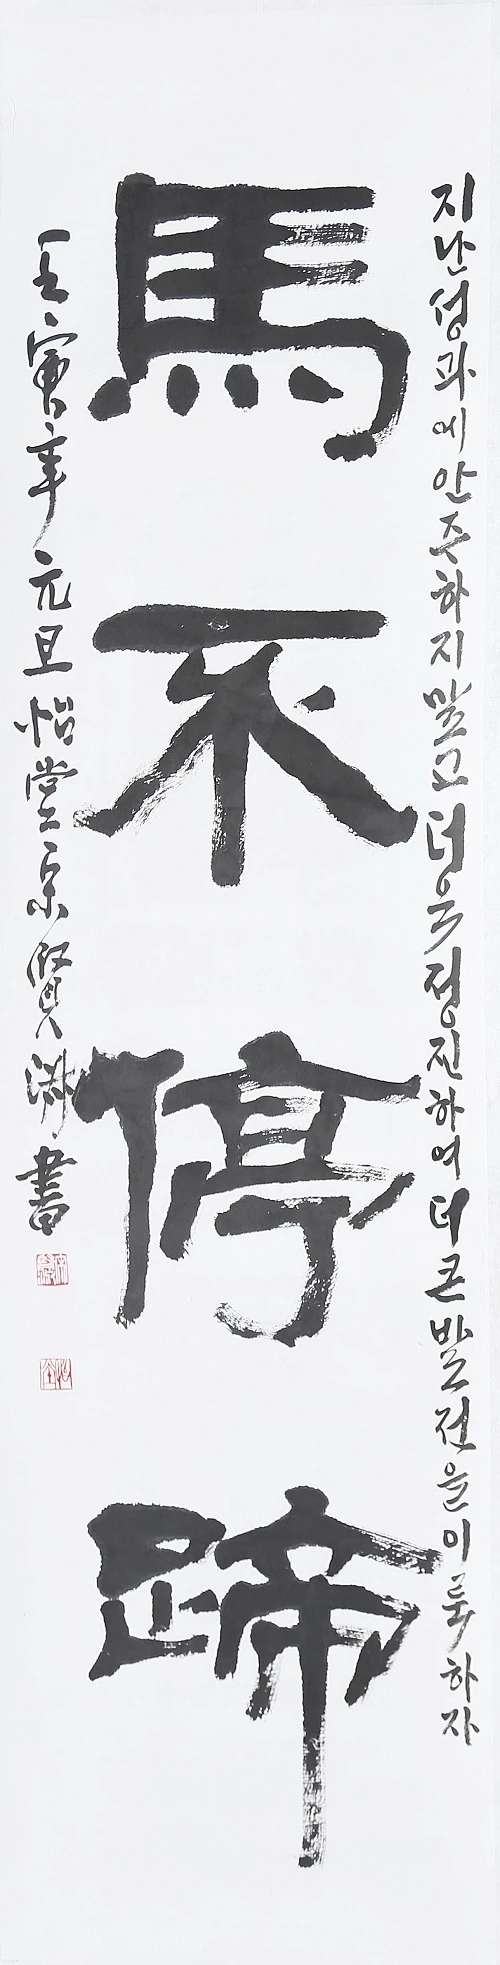 지난성과에안주하지말고더욱정진하여더큰발전을이룩하자
馬不停蹄
壬寅年元旦怡堂宗賢洙書